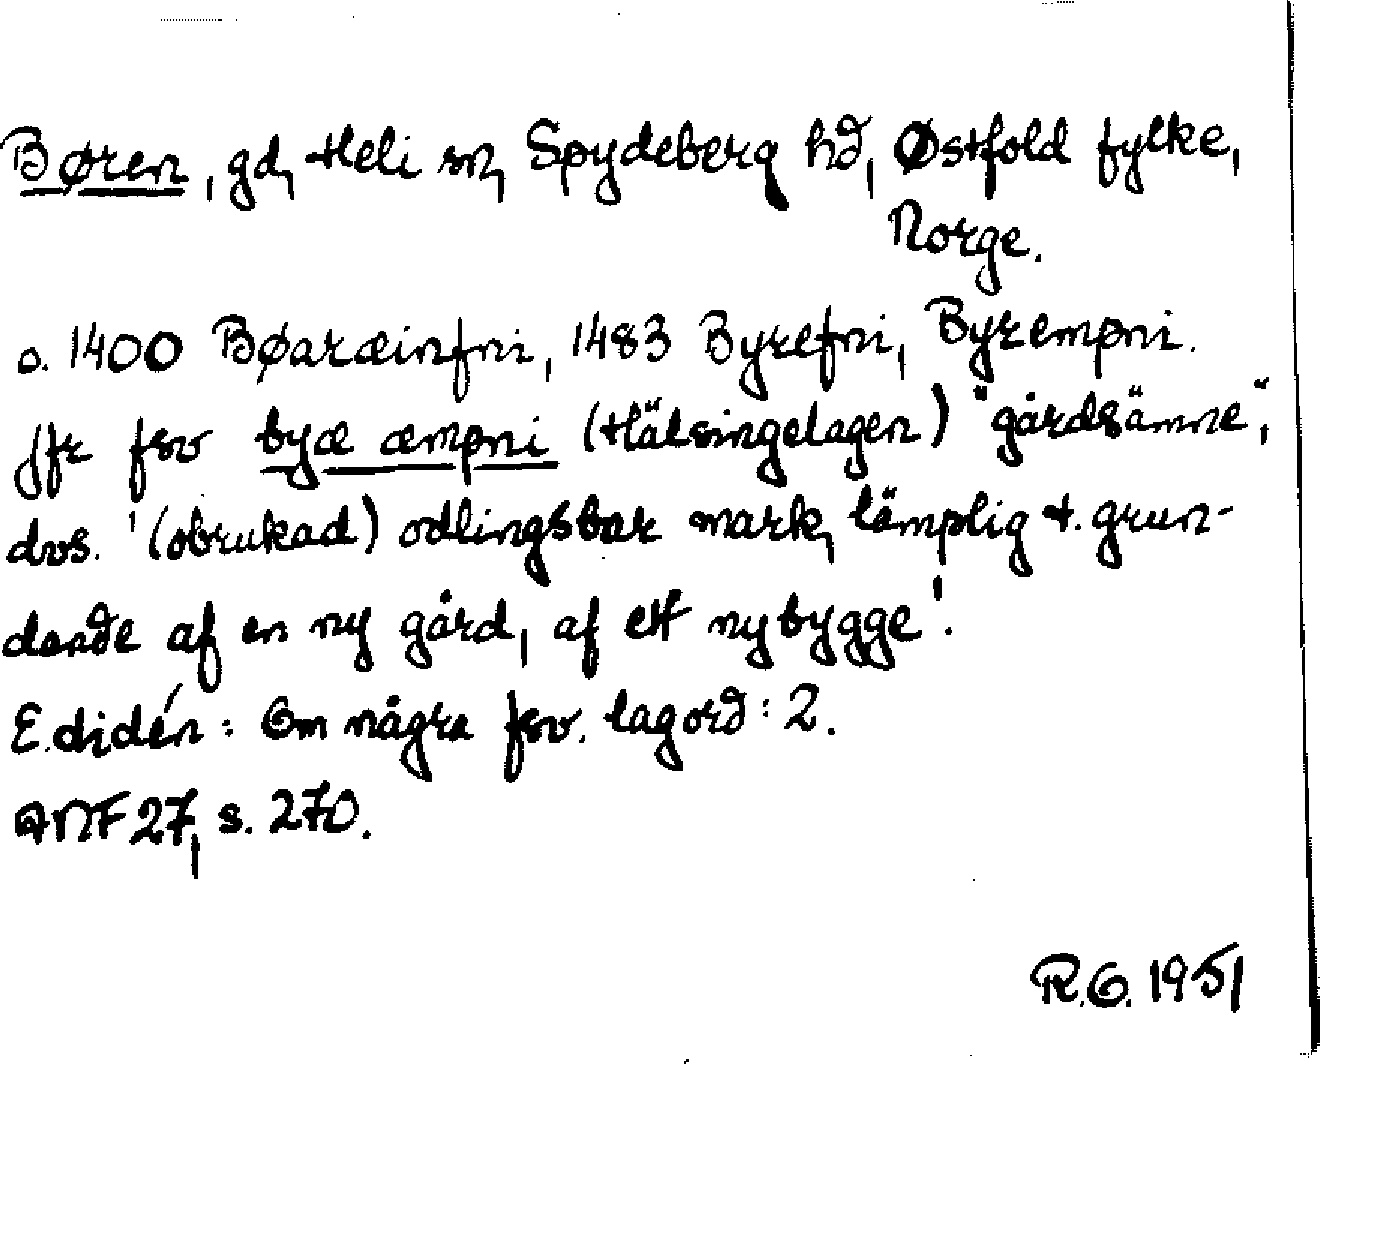 Børen, gd, Heli sn, Spydeberg hd, Østfold fylke,
Norge.
o. 1400 Bøaræinfni, 1483 Byrefni, Byrempni.
Jfr fsv byæ æmpni (Hälsingelagen) "gårdsämne",
dvs. '(obrukad) odlingsbar mark, lämplig t. grun-
dande af en ny gård, af ett nybygge'.
E. Lidén: Om några fsv. lagord: 2.
ANF 27, s. 270.
R.G. 1951